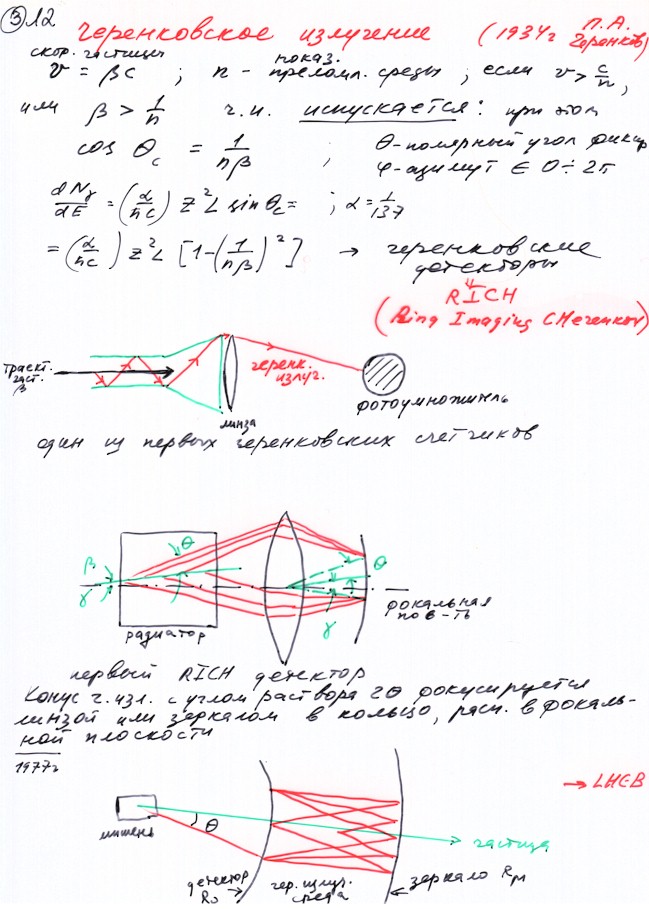 ③12
черенковское излучение (1934г П.А. Черенков)
скор. частицы показ.
v = βc ; n - преломл. среды ; если v > c/n,
или β > 1/n ч.и. испускается: при этом
cos θc = 1/nβ ; θ-полярный угол фикир
φ-азимут ∈ 0÷2π
dNγ/dE = (α/ħc) z² L sin θc = ; α = 1/137
= (α/ħc) z² L [1-(1/nβ)²] → черенковские
детекторы
RICH
(Ring Imaging CHerenkov)
траект.
част.
β
черенк.
излуч.
линза
фотоумножитель
один из первых черенковских счетчиков
β
γ
θ
θ
γ
радиатор
фокальная
пов-ть
первый RICH детектор
Конус ч.изл. с углом раствора 2θ фокусируется
линзой или зеркалом в кольцо, расп. в фокаль-
ной плоскости
1977г
→ LHCB
мишень
θ
частица
детектор
R₀ →
чер. излуч.
среда
← зеркало Rм